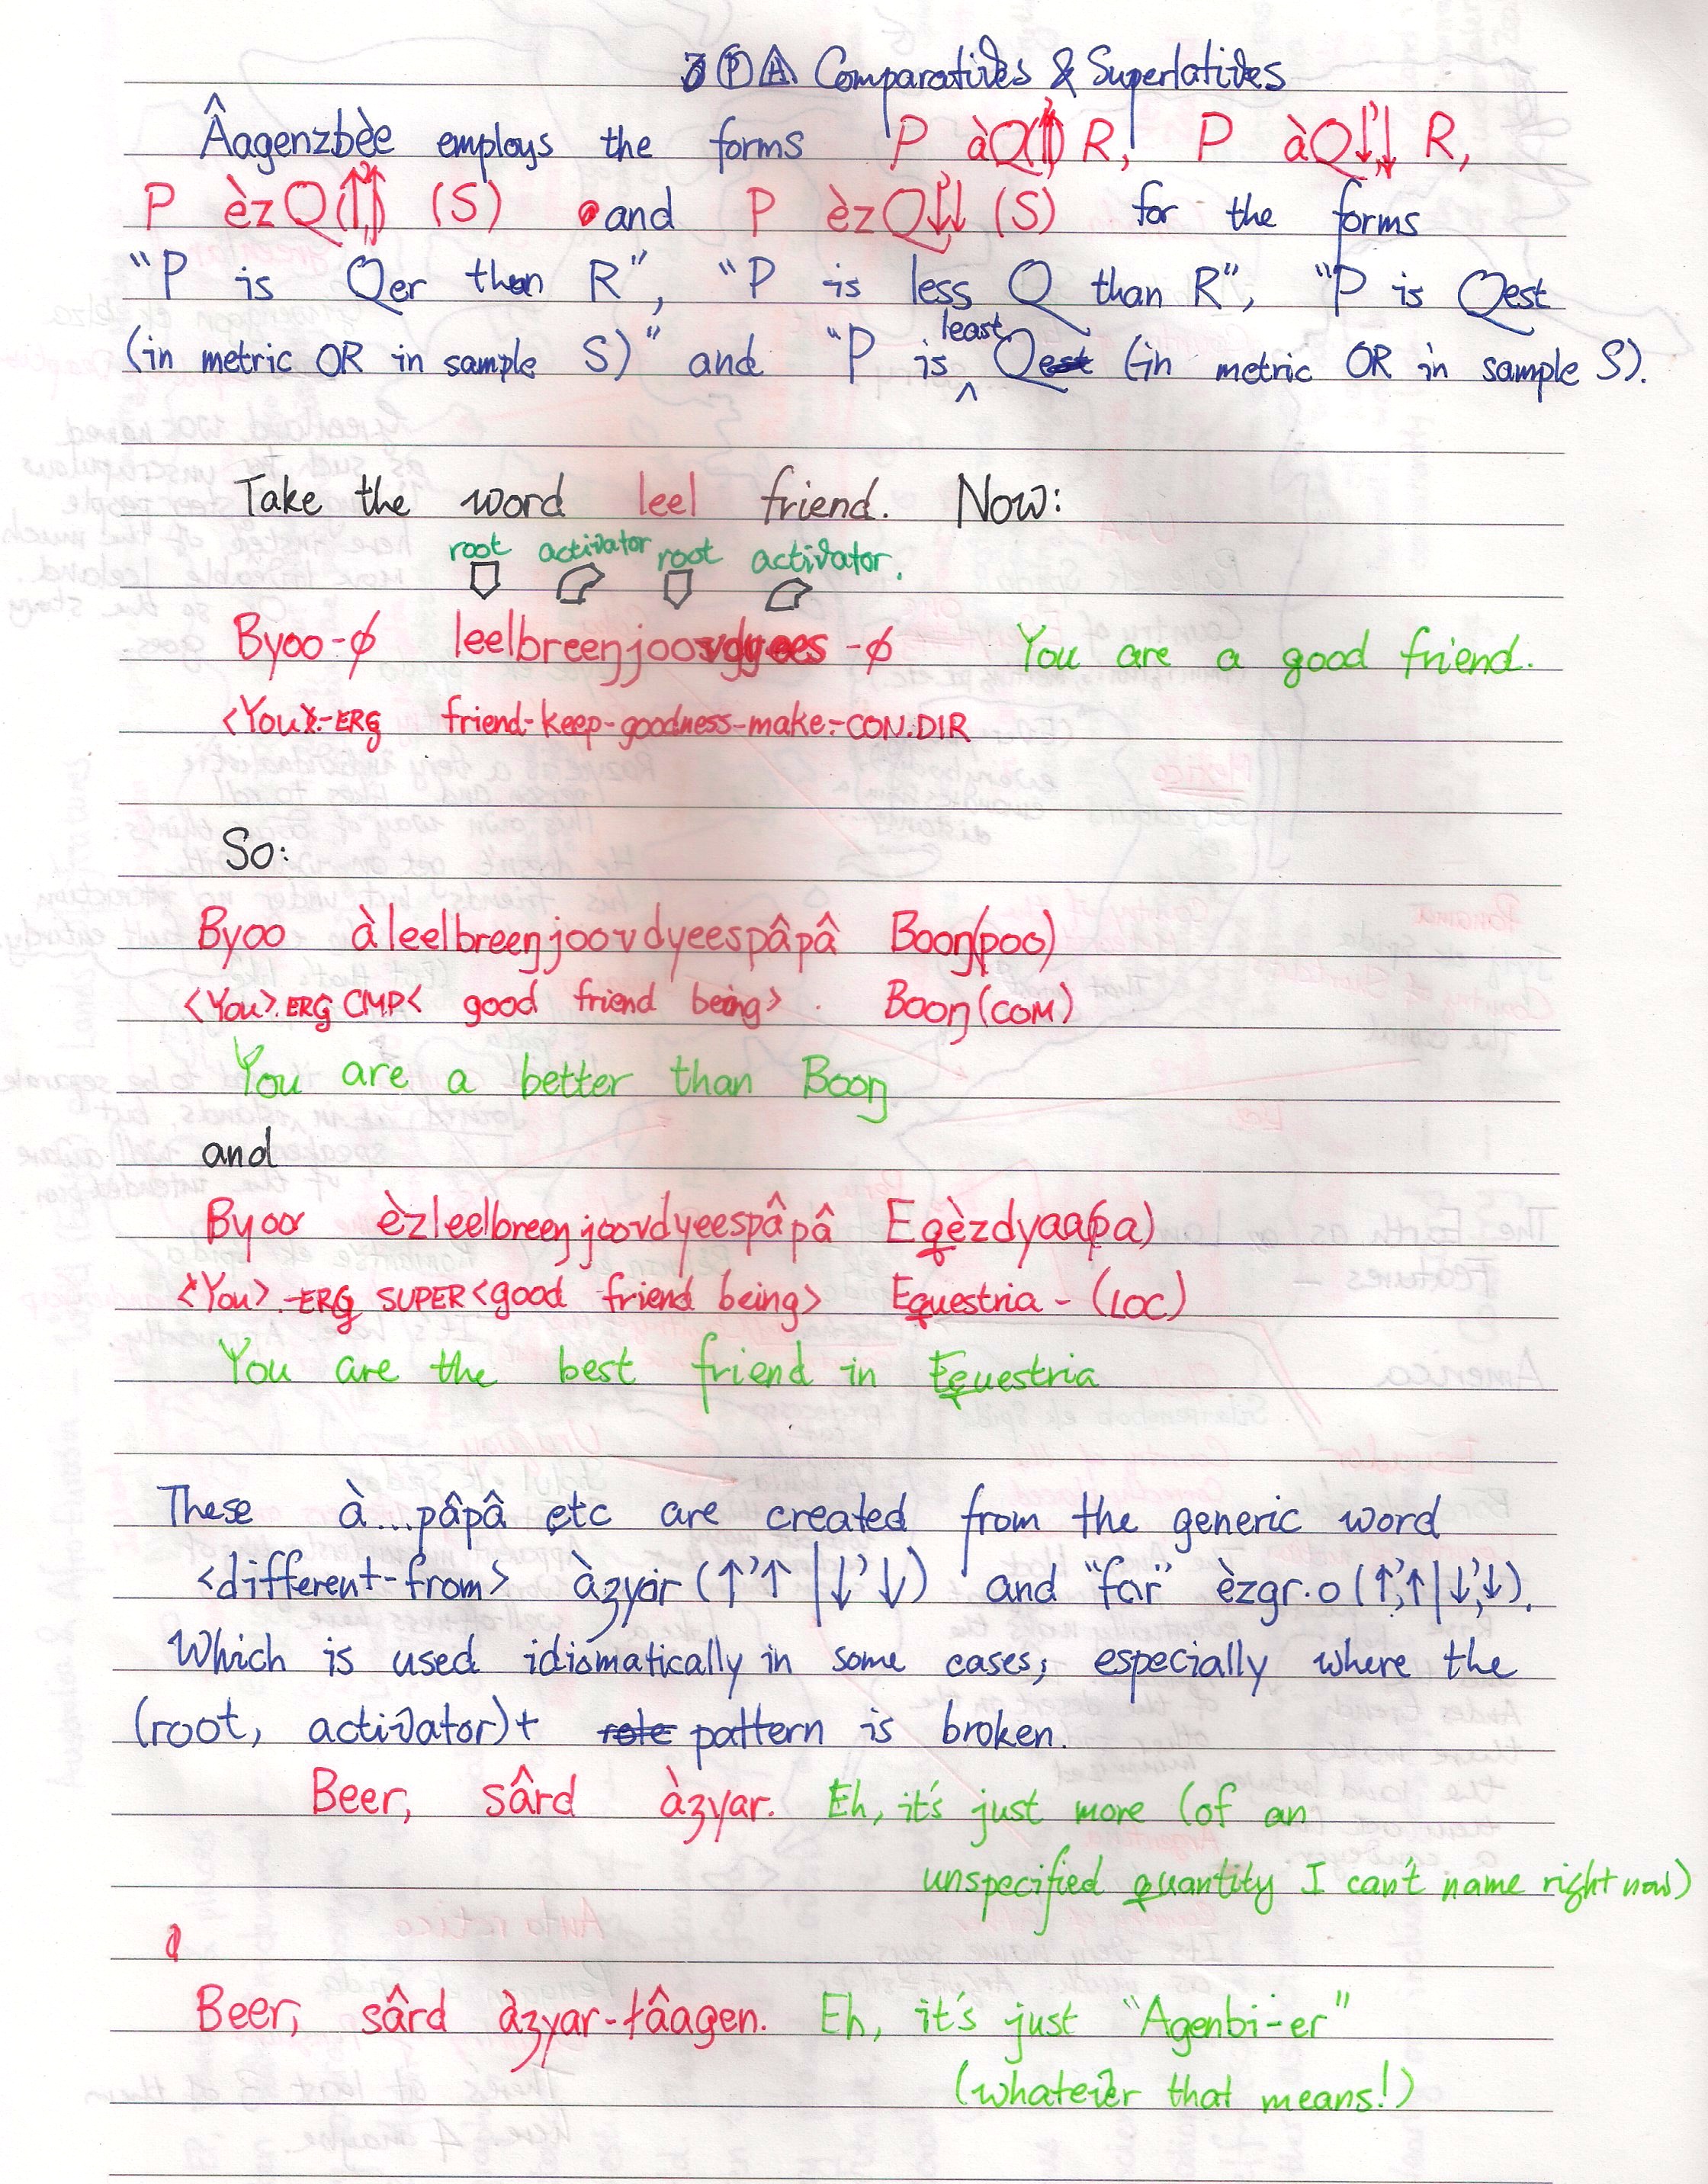 3 Ⓟ A Comparatives & Superlatives
Âagenzbèe employs the forms P àQ(↑'↑) R, P àQ↓'↓ R,
P èzQ(↑'↑) (S) and P èzQ↓'↓ (S) for the forms
"P is Qer than R", "P is less Q than R", "P is Qest
(in metric OR in sample S)" and "P is least Qest (in metric OR in sample S).
Take the word leel friend. Now:
root activator root activator.
Byoo-ϕ leelbreeŋjoovdyees-ϕ You are a good friend.
<You>-ERG friend-keep-goodness-make-CON.DIR
So:
Byoo àleelbreeŋjoovdyeespâpâ Booŋ(poo)
<You>.ERG CMP< good friend being> . Booŋ(COM)
You are a better than Booŋ
and
Byoo èzleelbreeŋjoovdyeespâpâ Eqèzdyaa(pa)
<You>-ERG SUPER<good friend being> Equestria-(LOC)
You are the best friend in Equestria
These à...pâpâ etc are created from the generic word
<different-from> àzyar (↑'↑ | ↓'↓) and "far" èzgr.o (↑'↑ | ↓'↓).
Which is used idiomatically in some cases; especially where the
(root, activator)+ pattern is broken.
Beer, sârd àzyar. Eh, it's just more (of an
unspecified quantity I can't name right now)
Beer, sârd àzyar-tâagen. Eh, it's just "Agenbi-er"
(whatever that means!)